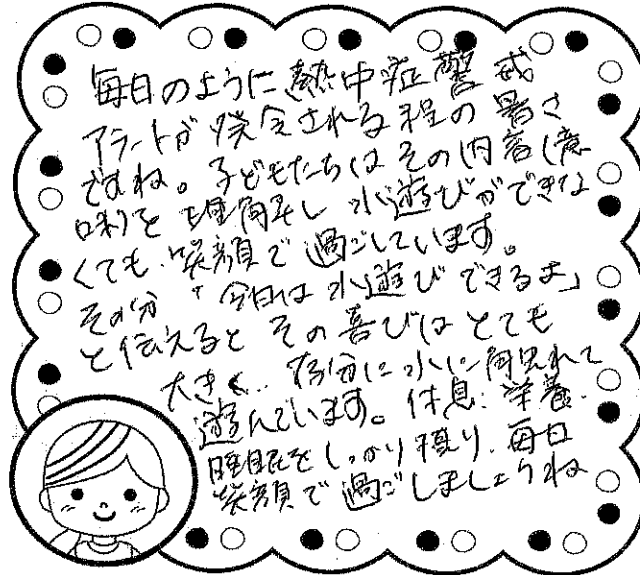 毎日のように熱中症警戒
アラートが発令される程の暑さ
ですね。子どもたちはその内容(意
味)を理解し水遊びができな
くても、笑顔で過ごしています。
その分「今日は水遊びできるよ」
と伝えるとその喜びはとても
大きく、存分に水に触れて
遊んでいます。休息、栄養、
睡眠をしっかり摂り、毎日
笑顔で過ごしましょうね